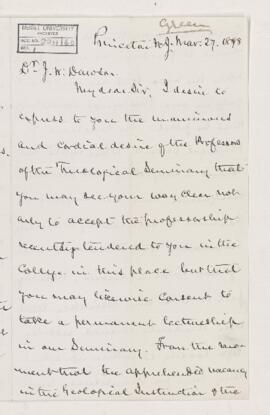 Green
McGILL UNIVERSITY
ARCHIVES
ACC. NO.
REF.
Princeton N. J. Mar. 27. 1878
Dr. J. W. Dawson.
My dear Sir, I desire to
express to you the unanimous
and cordial desire of the Professors
of the Theological Seminary that
you may see your way clear not
only to accept the professorship
recently tendered to you in the
College in this place but that
you may likewise consent to
take a permanent lectureship
in our Seminary. From the mo-
ment that the apprehended vacancy
in the Geological Instruction of the